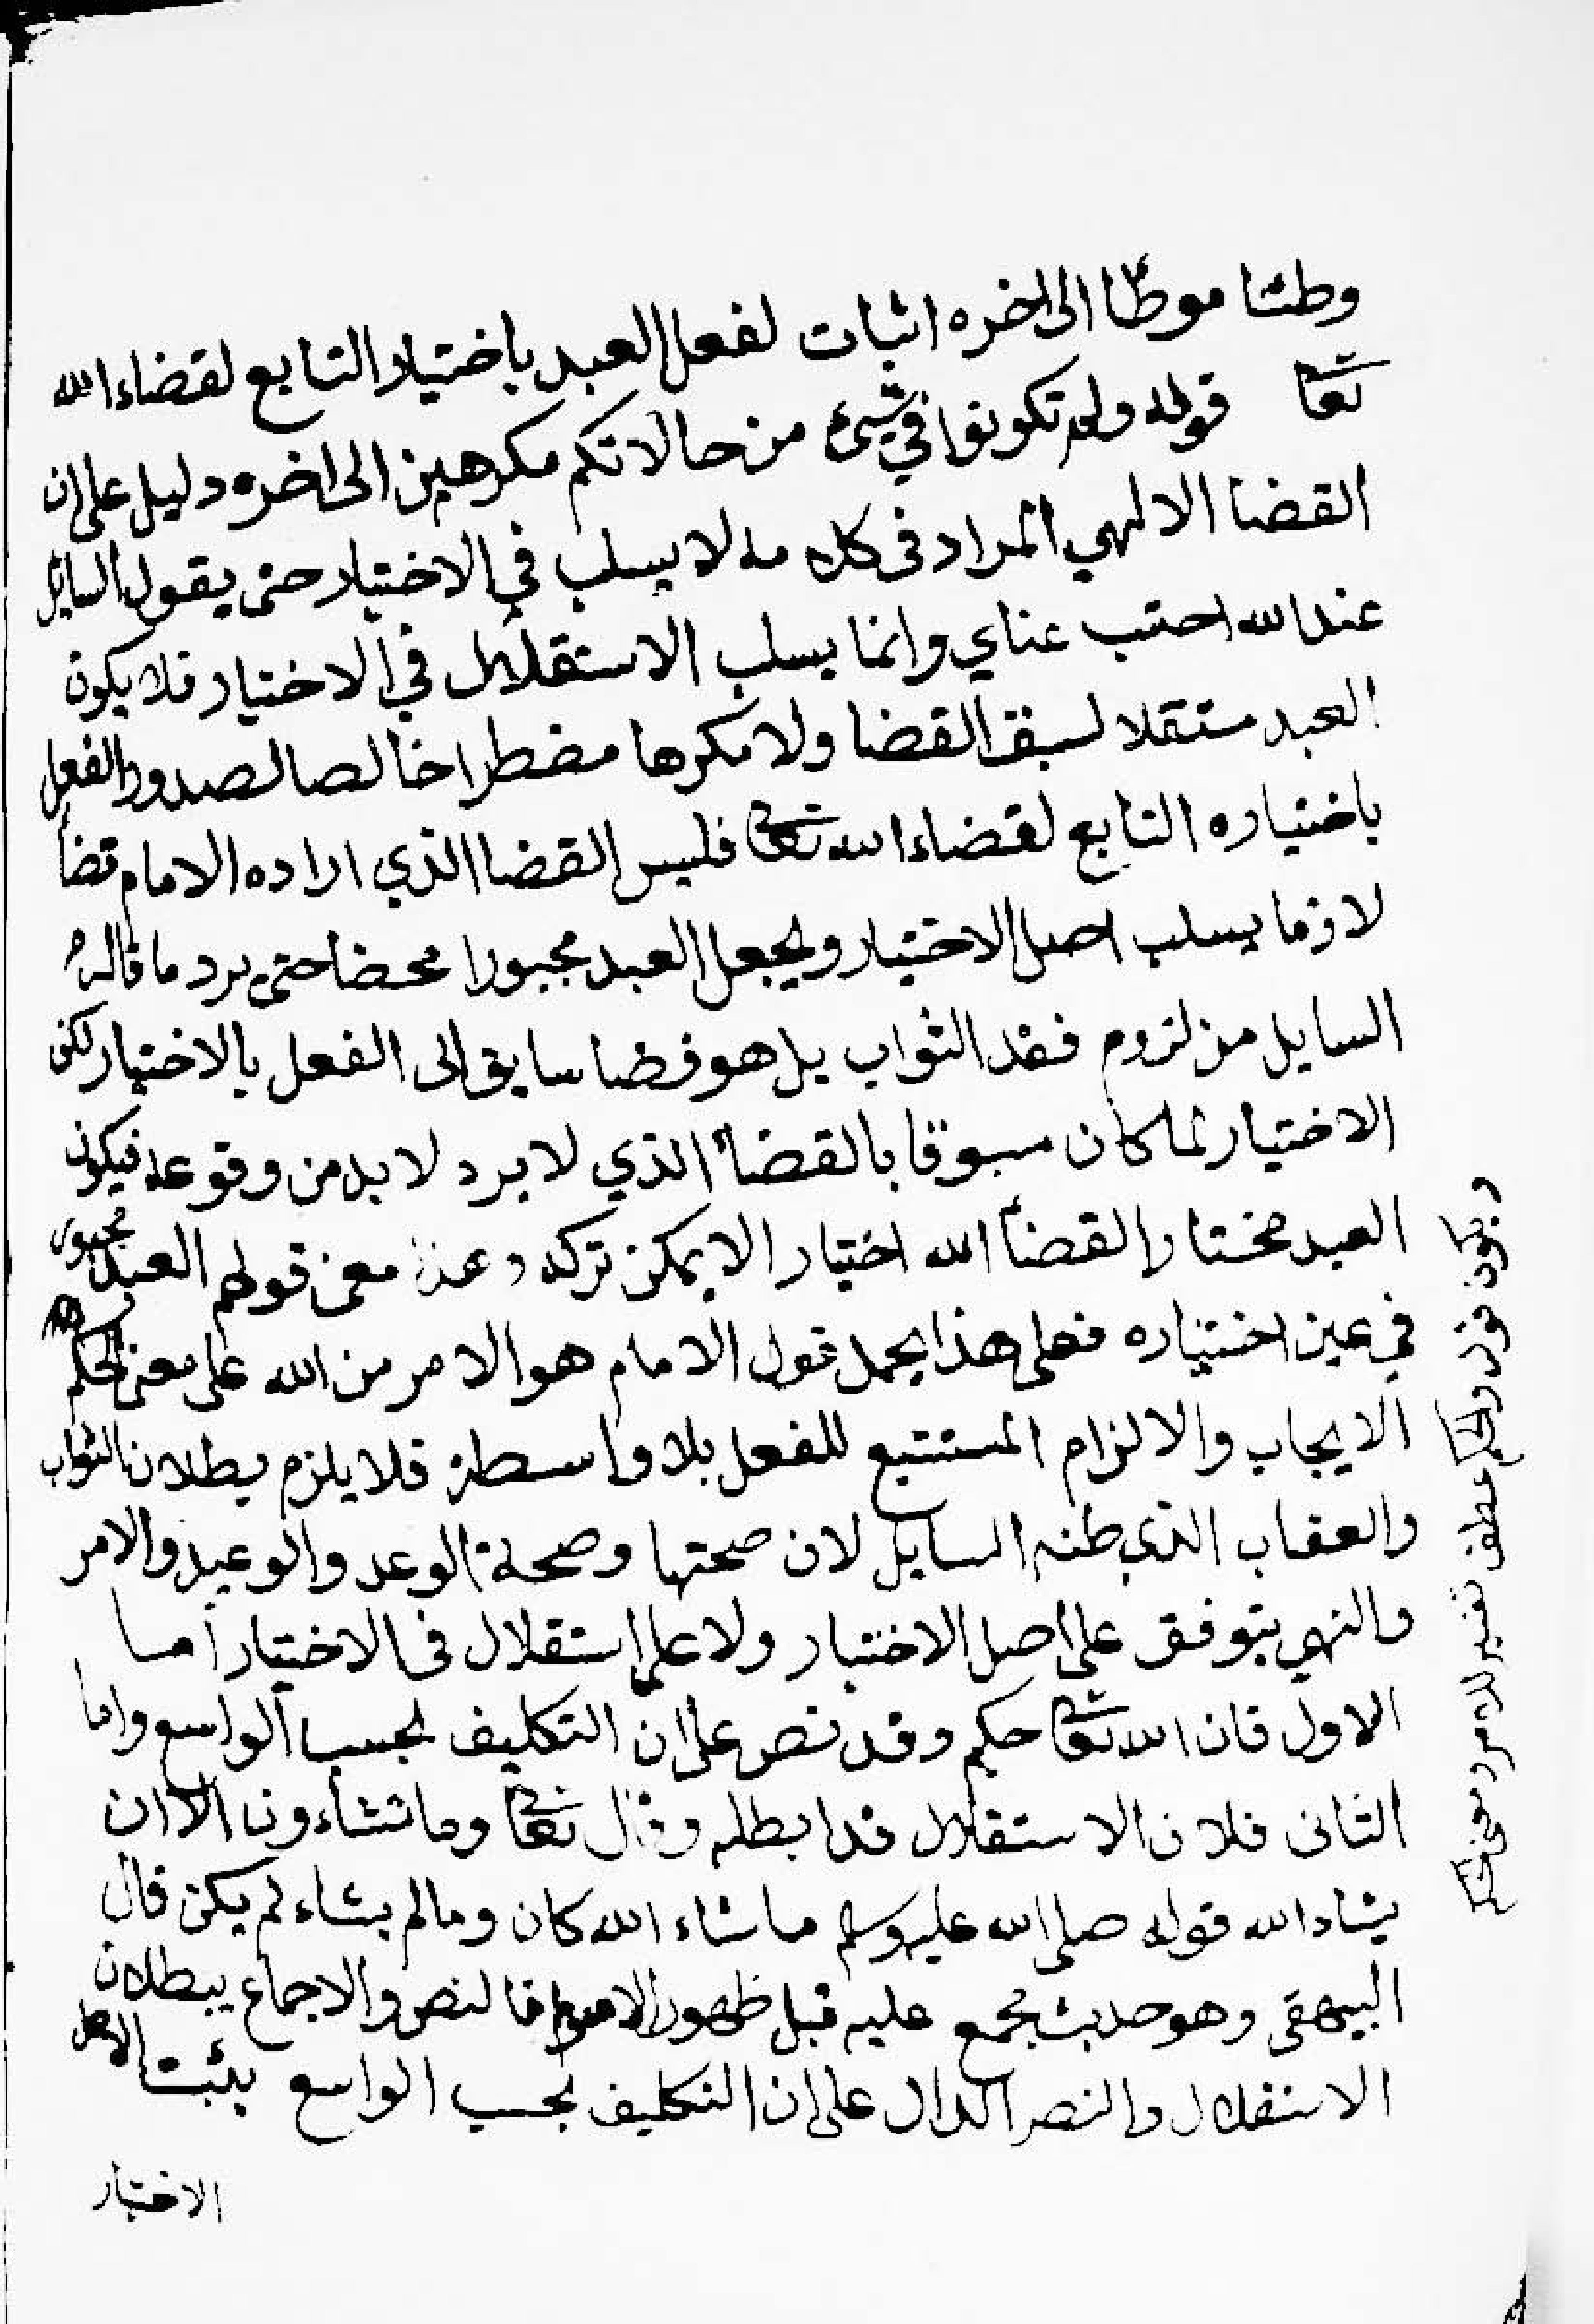 وطئنا موطئا الى اخره اثبات لفعل العبد باختيار التابع لقضاء الله
تعالى قوله ولم تكونوا في شيء من حالاتكم مكرهين الى اخره دليل على ان
القضا الالهي المراد في كلامه لا يسلب في الاختيار حتى يقول السايل
عند الله احتسب عناي وانما يسلب الاستقلال في الاختيار فلا يكون
العبد مستقلا لسبق القضا ولا مكرها مضطرا خالصا لصدور الفعل
باختياره التابع لقضاء الله تعالى فليس القضا الذي اراده الامام قضأ
لازما يسلب اصل الاختيار ويجعل العبد مجبورا محضا حتى يرد ما قاله
السايل من لزوم فقد الثواب بل هو قضا سايق الى الفعل بالاختيار لكن
الاختيار لما كان مسبوقا بالقضاء الذي لا يرد لا بد من وقوعه فيكون
العبد مختارا لقضأ الله اختيارا لا يمكن تركه وهذا معنى قولهم العبد مجبور
في عين اختياره فعلى هذا يحمل قول الامام هو الامر من الله على معنى الحكم
الايجاب والالزام المستتبع للفعل بلا واسطة فلا يلزم بطلان الثواب
والعقاب الذي ظنه السايل لان صحتها وصحة الوعد والوعيد والامر
والنهي يتوقف على اصل الاختيار ولا على استقلال في الاختيار اما
الاول فان الله تعالى حكيم وقد نص على ان التكليف بحسب الواسع واما
الثاني فلان الاستقلال قد ابطله وقال تعالى وما تشاءون الا ان
يشاء الله قوله صلى الله عليه وسلم ما شاء الله كان وما لم يشاء لم يكن قال
البيهقي وهو حديث مجمع عليه قبل ظهور الاهواء فالنص والاجماع يبطلان
الاستقلال والنص الدال على ان التكليف بحسب الواسع يثبت الاصل
الاختيار
ويكون قوله والحكم عطف تفسير للامر ومعنى الحكم